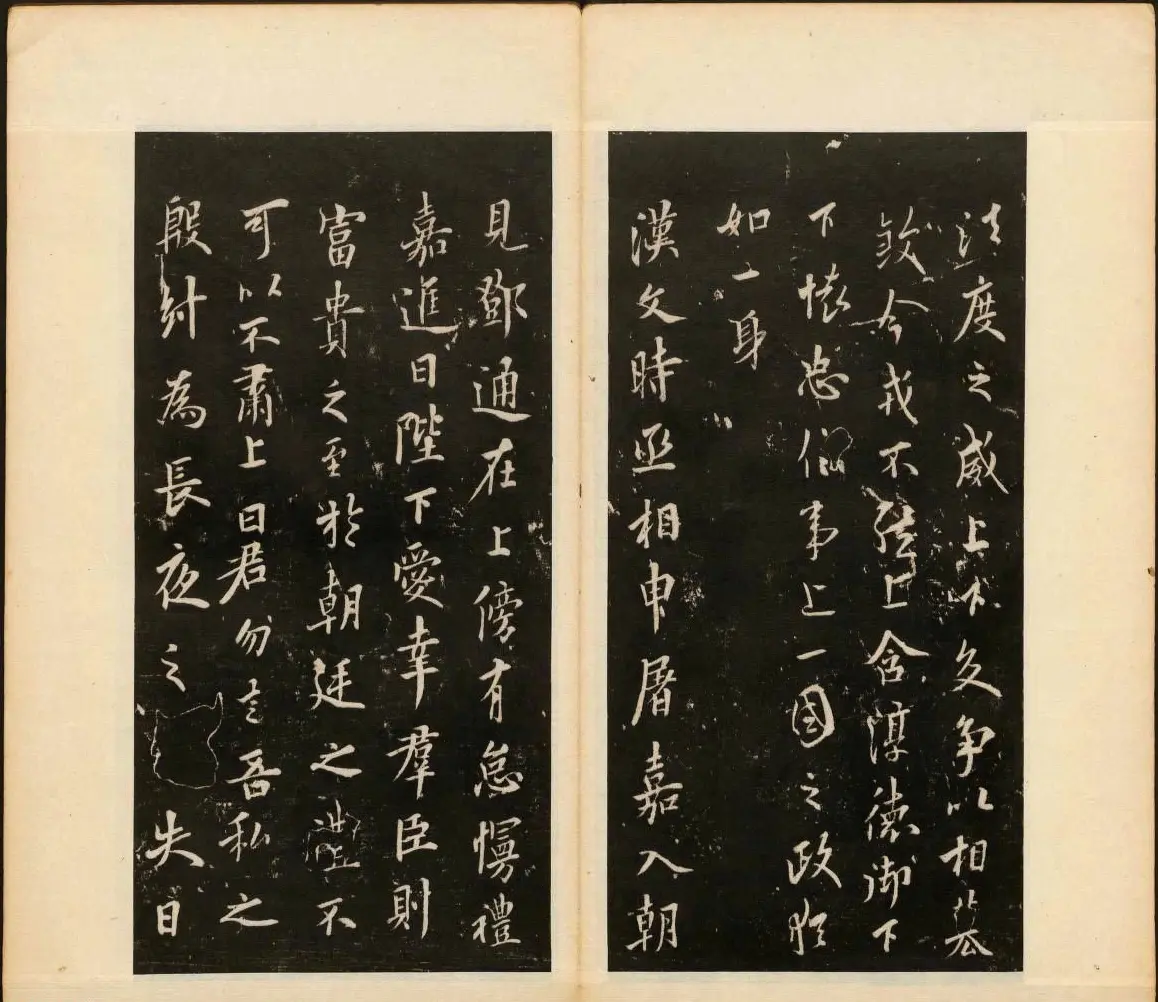 法度之威上下交争以相
弑今戎不然上含淳德御下
下懷忠信事上一國之政猶
如一身
漢文時丞相申屠嘉入朝
見鄧通在上傍有怠慢禮
嘉進曰陛下愛幸羣臣則
富貴之至於朝廷之禮不
可以不肅上曰君勿言吾私之
殷紂為長夜之失日